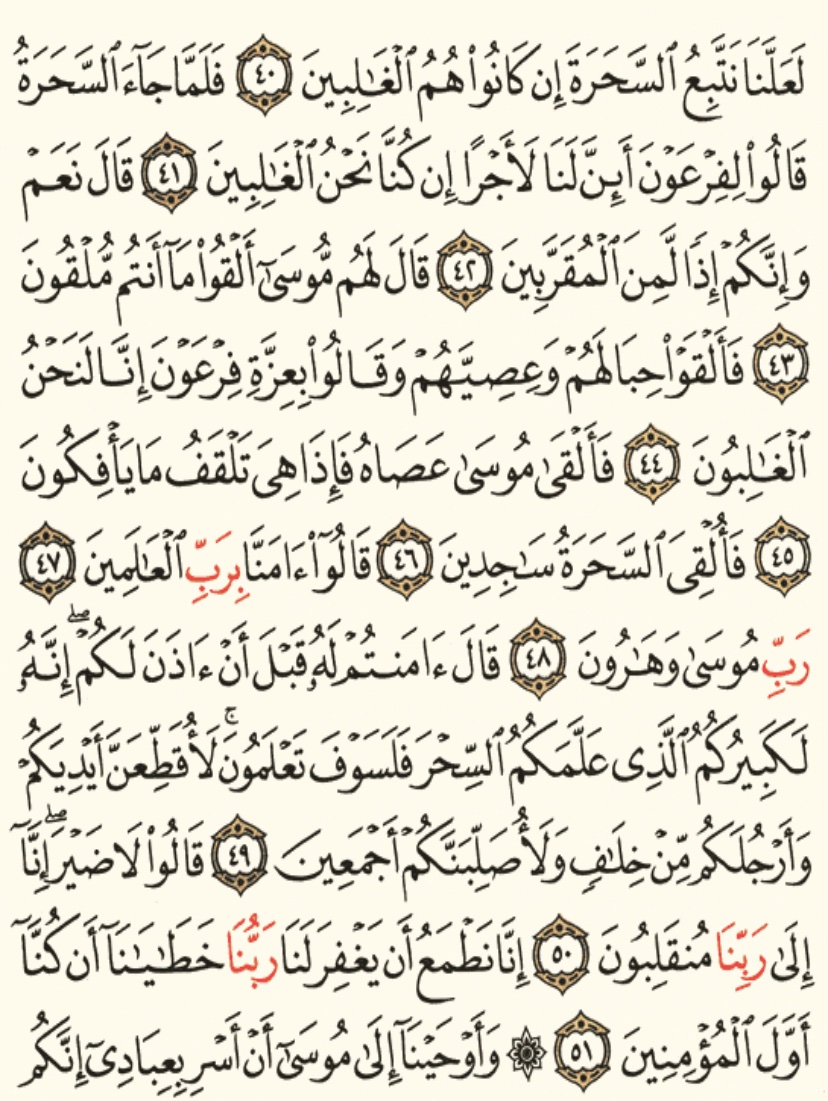 لَعَلَّنَا نَتَّبِعُ ٱلسَّحَرَةَ إِن كَانُوا۟ هُمُ ٱلْغَـٰلِبِينَ ٤٠ فَلَمَّا جَآءَ ٱلسَّحَرَةُ
قَالُوا۟ لِفِرْعَوْنَ أَئِنَّ لَنَا لَأَجْرًا إِن كُنَّا نَحْنُ ٱلْغَـٰلِبِينَ ٤١ قَالَ نَعَمْ
وَإِنَّكُمْ إِذًا لَّمِنَ ٱلْمُقَرَّبِينَ ٤٢ قَالَ لَهُم مُّوسَىٰٓ أَلْقُوا۟ مَآ أَنتُم مُّلْقُونَ
٤٣ فَأَلْقَوْا۟ حِبَالَهُمْ وَعِصِيَّهُمْ وَقَالُوا۟ بِعِزَّةِ فِرْعَوْنَ إِنَّا لَنَحْنُ
ٱلْغَـٰلِبُونَ ٤٤ فَأَلْقَىٰ مُوسَىٰ عَصَاهُ فَإِذَا هِىَ تَلْقَفُ مَا يَأْفِكُونَ
٤٥ فَأُلْقِىَ ٱلسَّحَرَةُ سَـٰجِدِينَ ٤٦ قَالُوٓا۟ ءَامَنَّا بِرَبِّ ٱلْعَـٰلَمِينَ ٤٧
رَبِّ مُوسَىٰ وَهَـٰرُونَ ٤٨ قَالَ ءَامَنتُمْ لَهُۥ قَبْلَ أَنْ ءَاذَنَ لَكُمْ ۖ إِنَّهُۥ
لَكَبِيرُكُمُ ٱلَّذِى عَلَّمَكُمُ ٱلسِّحْرَ فَلَسَوْفَ تَعْلَمُونَ ۚ لَأُقَطِّعَنَّ أَيْدِيَكُمْ
وَأَرْجُلَكُم مِّنْ خِلَـٰفٍ وَلَأُصَلِّبَنَّكُمْ أَجْمَعِينَ ٤٩ قَالُوا۟ لَا ضَيْرَ ۖ إِنَّآ
إِلَىٰ رَبِّنَا مُنقَلِبُونَ ٥٠ إِنَّا نَطْمَعُ أَن يَغْفِرَ لَنَا رَبُّنَا خَطَـٰيَـٰنَآ أَن كُنَّآ
أَوَّلَ ٱلْمُؤْمِنِينَ ٥١ ۞ وَأَوْحَيْنَآ إِلَىٰ مُوسَىٰٓ أَنْ أَسْرِ بِعِبَادِىٓ إِنَّكُم